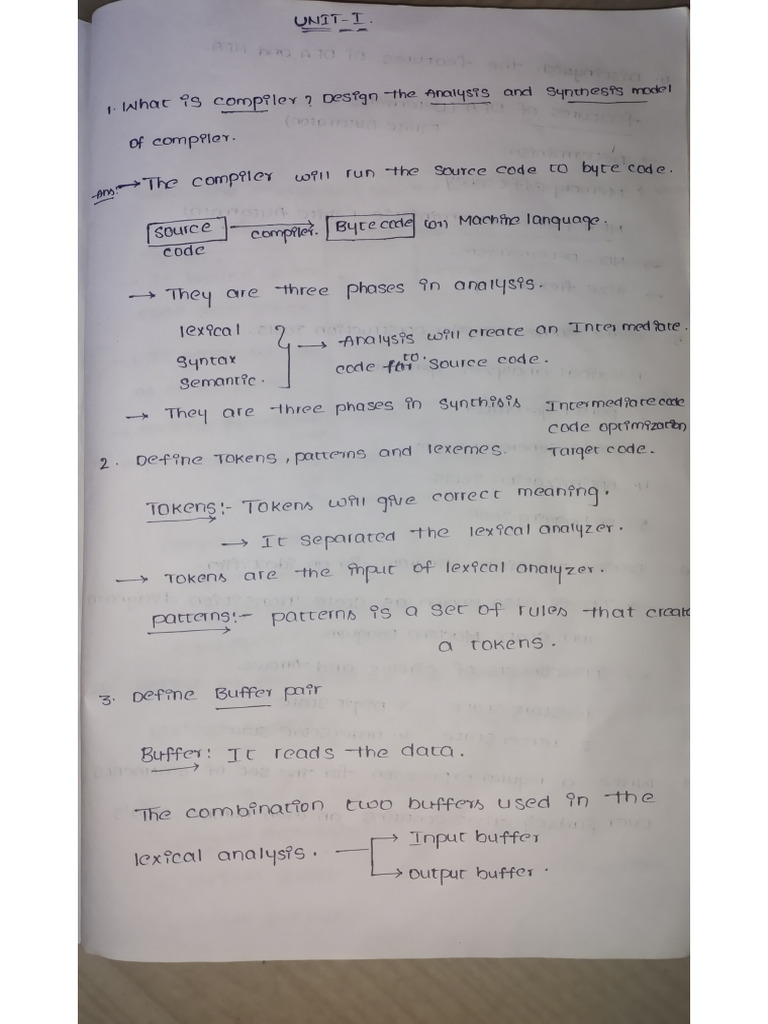 UNIT-I.
1. What is compiler? Design the Analysis and Synthesis model
of compiler.
Ans:- → The compiler will run the source code to byte code.
source code → compiler. Byte code (or) Machine language.
→ They are three phases in analysis.
lexical
syntax
semantic.
→ Analysis will create an Intermediate.
code for to source code.
→ They are three phases in synthisis
Intermediate code
code optimization
Target code.
2. Define Tokens, patterns and lexemes.
Tokens:- Tokens will give correct meaning.
→ It separated the lexical analyzer.
→ Tokens are the input of lexical analyzer.
patterns:- patterns is a set of rules that create
a tokens.
3. Define Buffer pair
Buffer: It reads the data.
The combination two buffers used in the
lexical analysis. → Input buffer
→ output buffer.